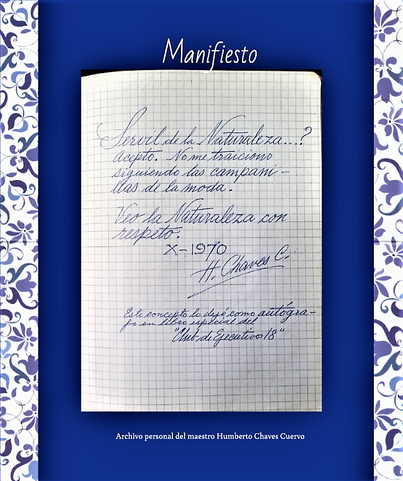 Manifiesto
Servil de la Naturaleza....?
acepto. No me traiciono
siguiendo las campani-
llas de la moda.
Veo la Naturaleza con
respeto.
X-1970
H. Chaves C.
Este concepto lo dejé como autógra-
fo en libro especial del
"Club de Ejecutivos 18"
Archivo personal del maestro Humberto Chaves Cuervo